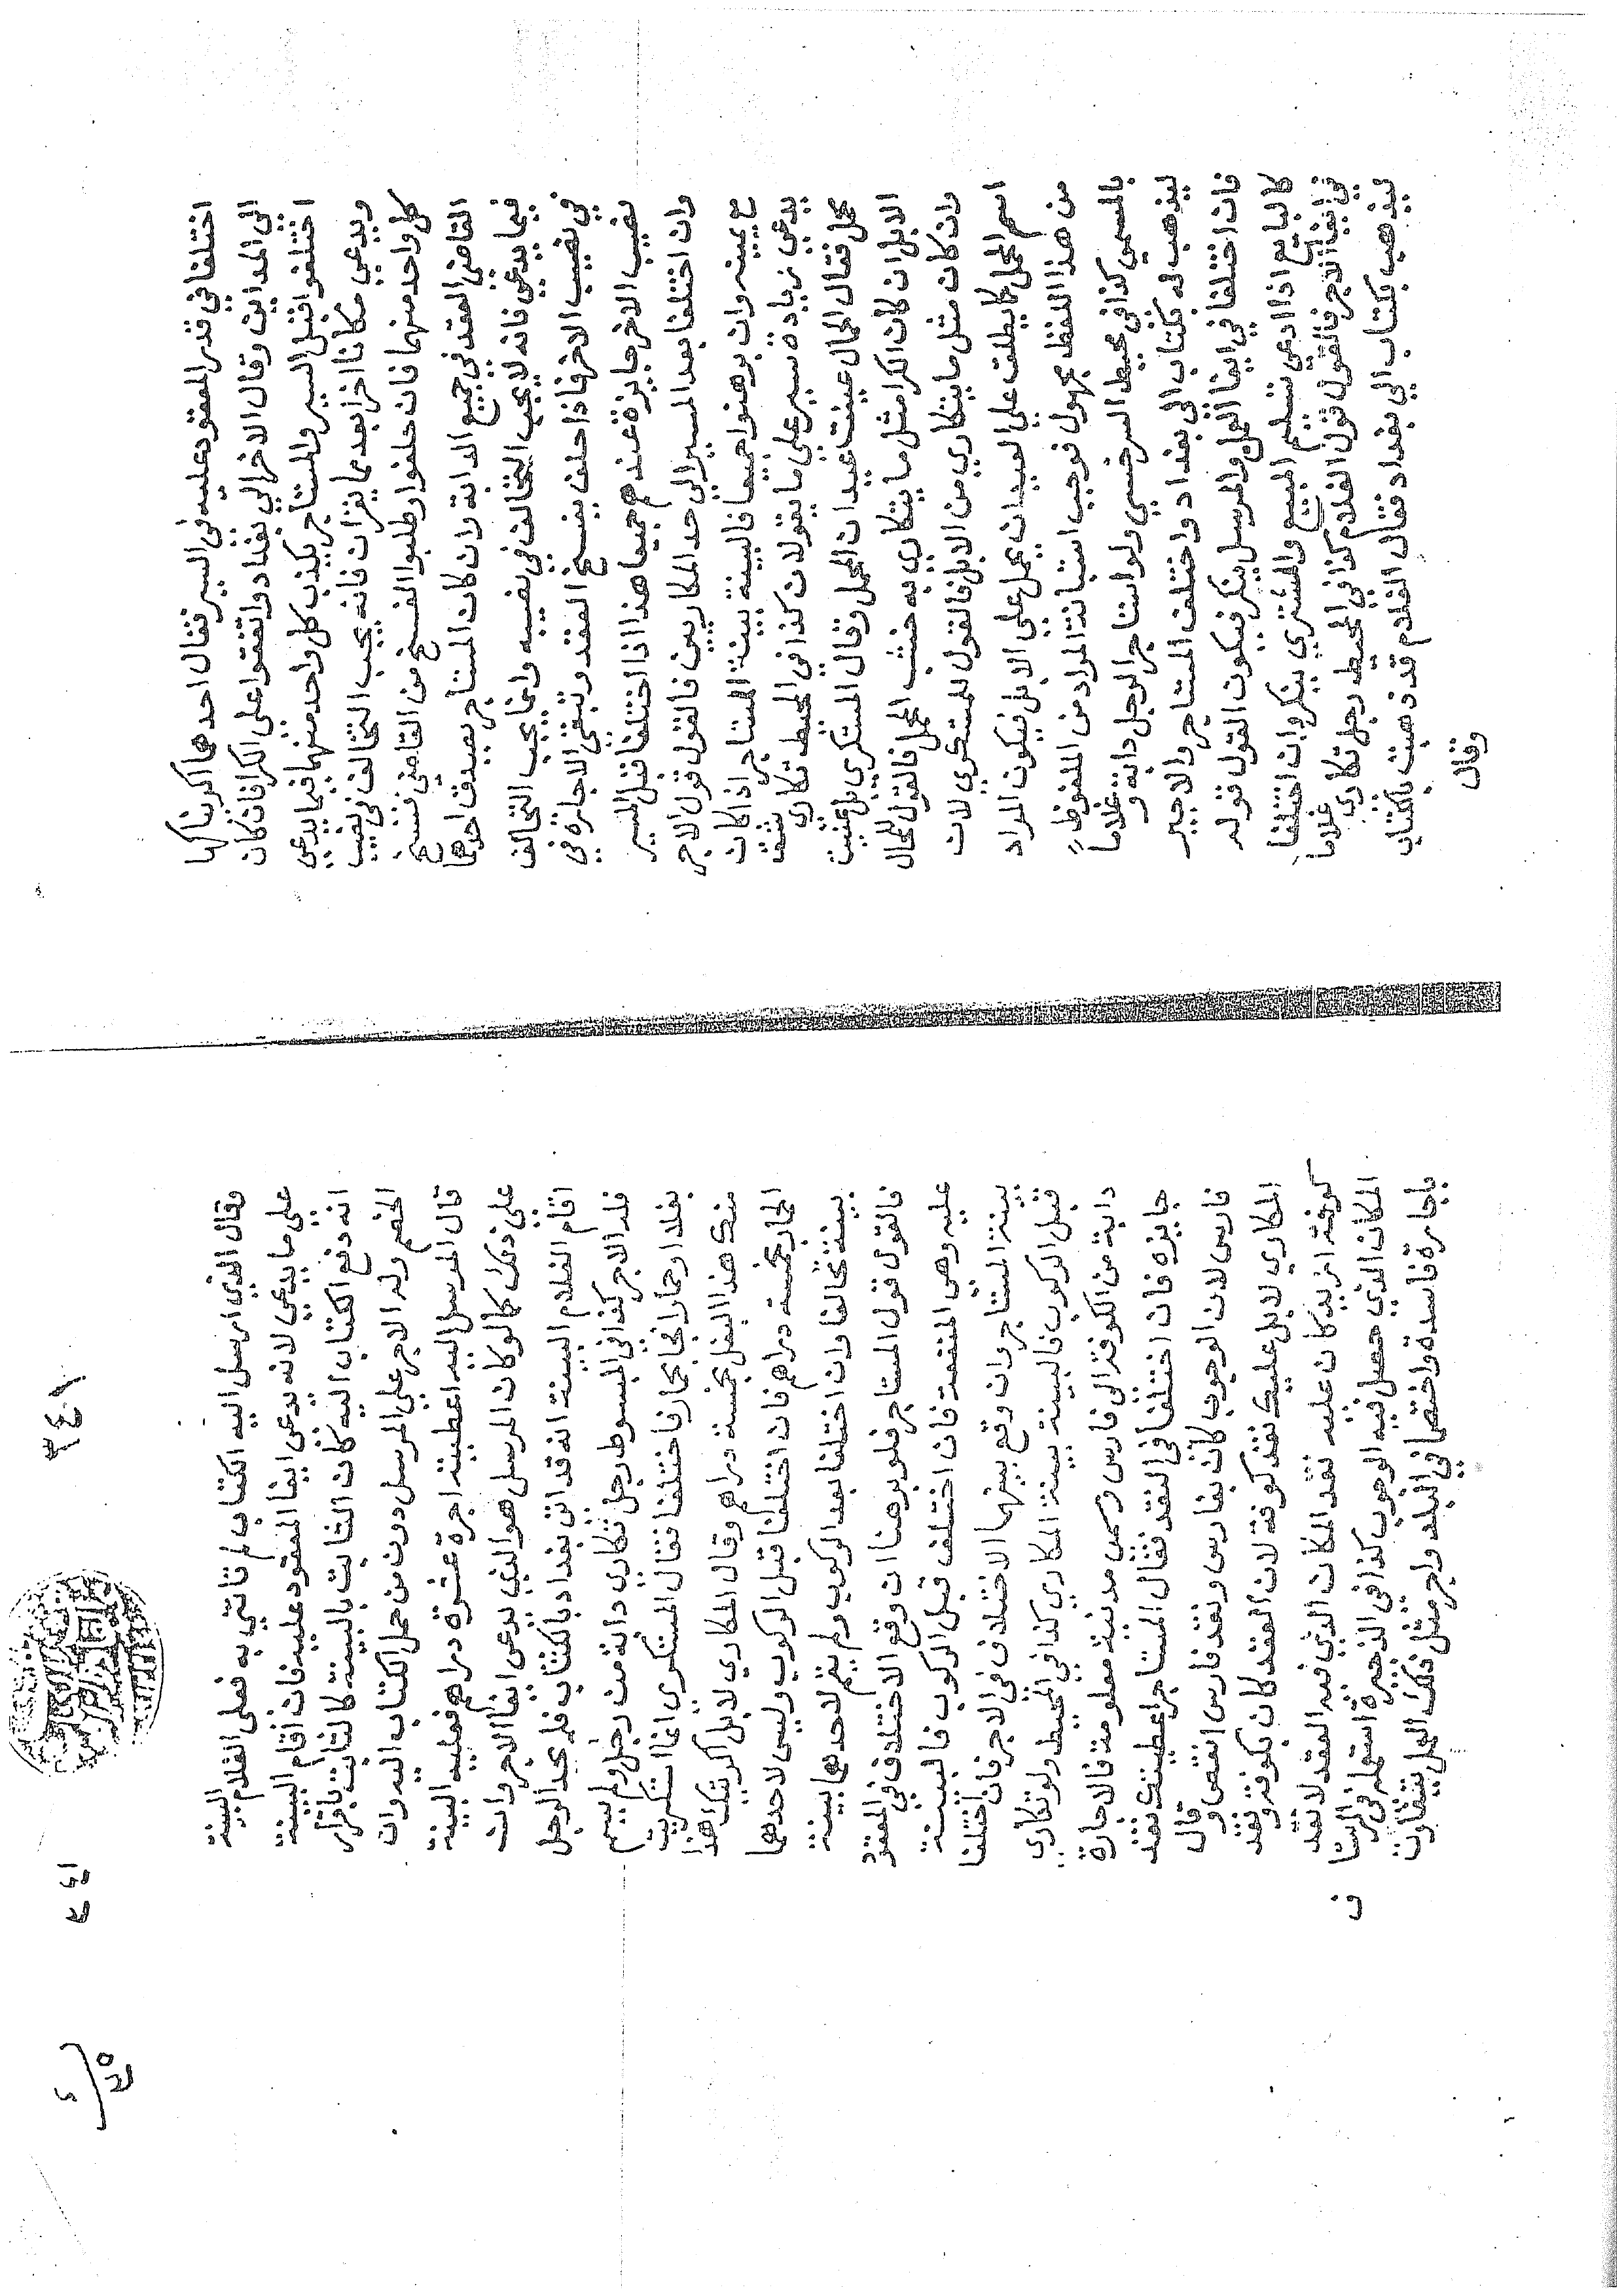 اختلفا في قدر المعقود عليه في السير فقال احدهما اكريناكها
الى المداين وقال الاخر الي بغداد واتفقوا على الكرا فان كان
اختلفوا قبل السير والمستاجر يكذب كل واحد منهما فيما يدعي
ويدعي مكانا اخر ابعد مما يقران فانه يجب التحالف في نصيب
كل واحد منهما فان حلفوا وطلبوا الفسخ من القاضي فسخ
القاضي العقد في جميع الدابة وان كان المستاجر يصدق احدهما
فيما يدعي فانه لا يجب التحالف في نصيبه وانما يجب التحالف
في نصيب الاخر فاذا حلف يفسخ العقد وتبقي الاجارة في
نصيب الاخر جايزة عندهم جميعا هذا اذا اختلفا قبل السير
وان اختلفا بعد المسير الي حد المكاريين فالقول قول الاجر
مع يمينه وان برهنوا جميعا فالبينة بينة المستاجر اذا كان
يدعي زيادة سير على ما يقولان كذا في المحيط تكاري شق
محمل فقال الحمال عنيت عيدان المحمل وقال المستكري بل عنيت
الابل ان كان الكرا مثل ما يتكاري به خشب المحمل فالقول للحمال
وان كان مثل ما يتكاري من الابل فالقول للمستكري لان
اسم المحمل كما يطلق علي العيدان يحمل علي الابل فيكون المراد
من هذا اللفظ مجهول فوجب استبانة المراد من الملفوظ
بالمسمي كذا في محيط السرخسي ولو استاجر الرجل دابة وغلاما
ليذهب له بكتاب الى بغداد واختلف المستاجر والاجير
فان اختلفا في ايفا العمل والمرسل ينكر فيكون القول قوله
كالبايع اذا ادعي تسليم المبيع والمشتري ينكر وان اختلفا
في ايفا الاجر فالقول قول الغلام كذا في المحيط رجل تكاري غلاما
ليذهب بكتاب الي بغداد فقال الغلام قد ذهبت بالكتاب
وقال
٣٤٩
٢٤١
وقال الذي ارسل اليه الكتاب لم تاتني به فعلى الغلام البينة
علي ما يدعي لانه يدعي ايفا المعقود عليه فان اقام البينة
انه دفع الكتاب اليه كان الثابت بالبينة كالثابت باقرار
الخصم وله الاجر علي المرسل دون من حمل الكتاب اليه وان
قال المرسل اليه اعطيته اجرة عشرة دراهم فعليه البينة
علي ذلك كما لو كان المرسل هو الذي يدعي ايفا الاجر وان
اقام الغلام البينة انه قد اتى بغداد بالكتاب فلم يجد الرجل
فله الاجر كذا في المبسوط رجل تكاري دابة من رجل ولم يسم
بغلا او حمارا فجا بحمار فاختلفا فقال المستكري انما استكريت
منك هذا البغل بخمسة دراهم وقال المكاري لا بل اكريتك هذا
الحمار بخمسة دراهم فان اختلفا قبل الركوب وليس لاحدهما
بينة تحالفا وان اختلفا بعد الركوب ولم يقم لاحدهما بينة
فالقول قول المستاجر فلو برهنا ان وقع الاختلاف في المعقود
عليه وهي المنفعة فان اختلف قبل الركوب فالبينة
بينة المستاجر وان وقع بينهما الاختلاف في الاجر فان اختلفا
قبل الركوب فالبينة بينة المكاري كذا في المحيط ولو تكاري
دابة من الكوفة الى فارس وسمى مدينة معلومة فالاجارة
جايزة فان اختلفا في النقد فقال المستاجر اعطيتك نقد
فارس لان الوجوب كان بفارس ونقد فارس انقص وقال
المكاري لا بل عليك نقد كوفة لان العقد كان بكوفة ونقد
كوفة ازيد كان عليه نقد المكان الذي فيه العقد لا نقد
المكان الذي حصل فيه الوجوب كذا في الذخيرة استعمله في الرستا ق
باجارة فاسدة واختصما في البلد واجر مثل ذلك العمل يتفاوت